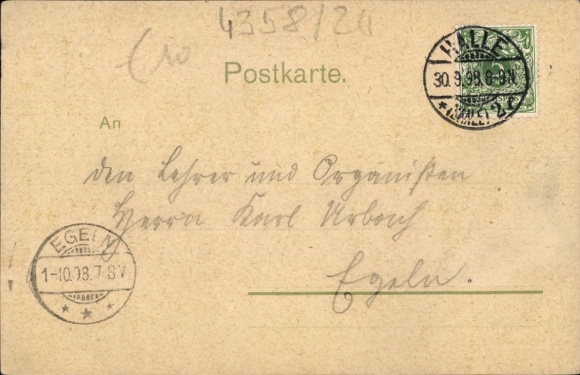 4358/20
Postkarte.
HALLE
30.9.98.6-9N.
*(SAALE)2c
An
den Lehrer und Organisten
Herrn Karl Urbach
Egeln.
EGELN
1-10.98.7-8V